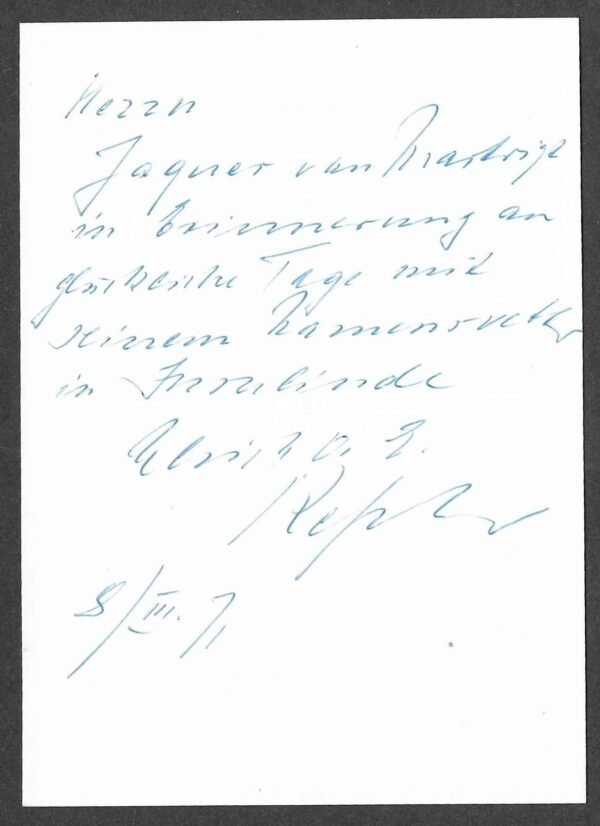 Herrn
Jaques van
in Erinnerung an
glückliche Tage mit
seinem Namensvetter
in Insulinde
Ulrich O. E.
Kessler
8/III. 71